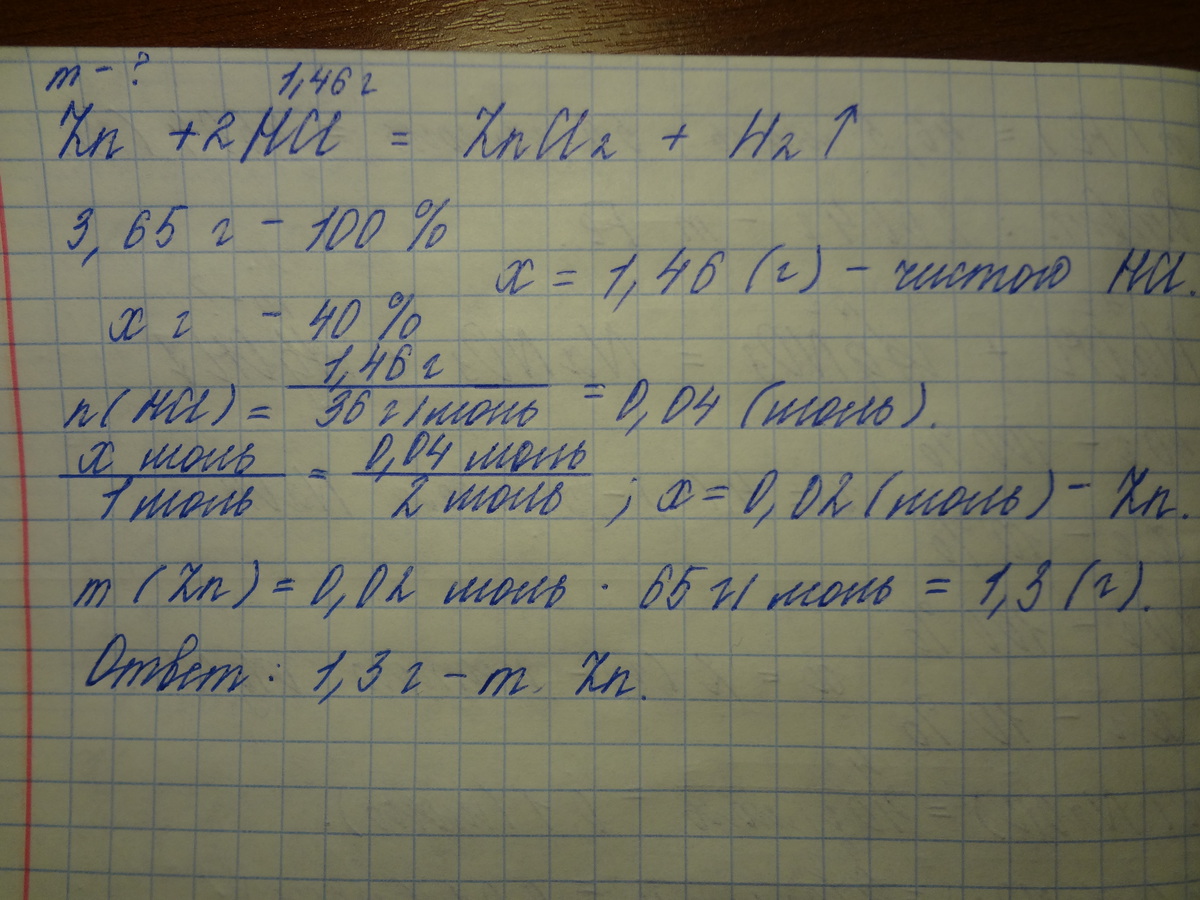 m - ?
1,46 г
Zn + 2HCl = ZnCl₂ + H₂↑
3,65 г - 100 %
x = 1,46 (г) - чистого HCl.
x г - 40 %
n(HCl) = 1,46 г / 36 г/моль = 0,04 (моль).
x моль / 1 моль = 0,04 моль / 2 моль ; x = 0,02 (моль) - Zn.
m (Zn) = 0,02 моль · 65 г/моль = 1,3 (г).
Ответ: 1,3 г - m Zn.